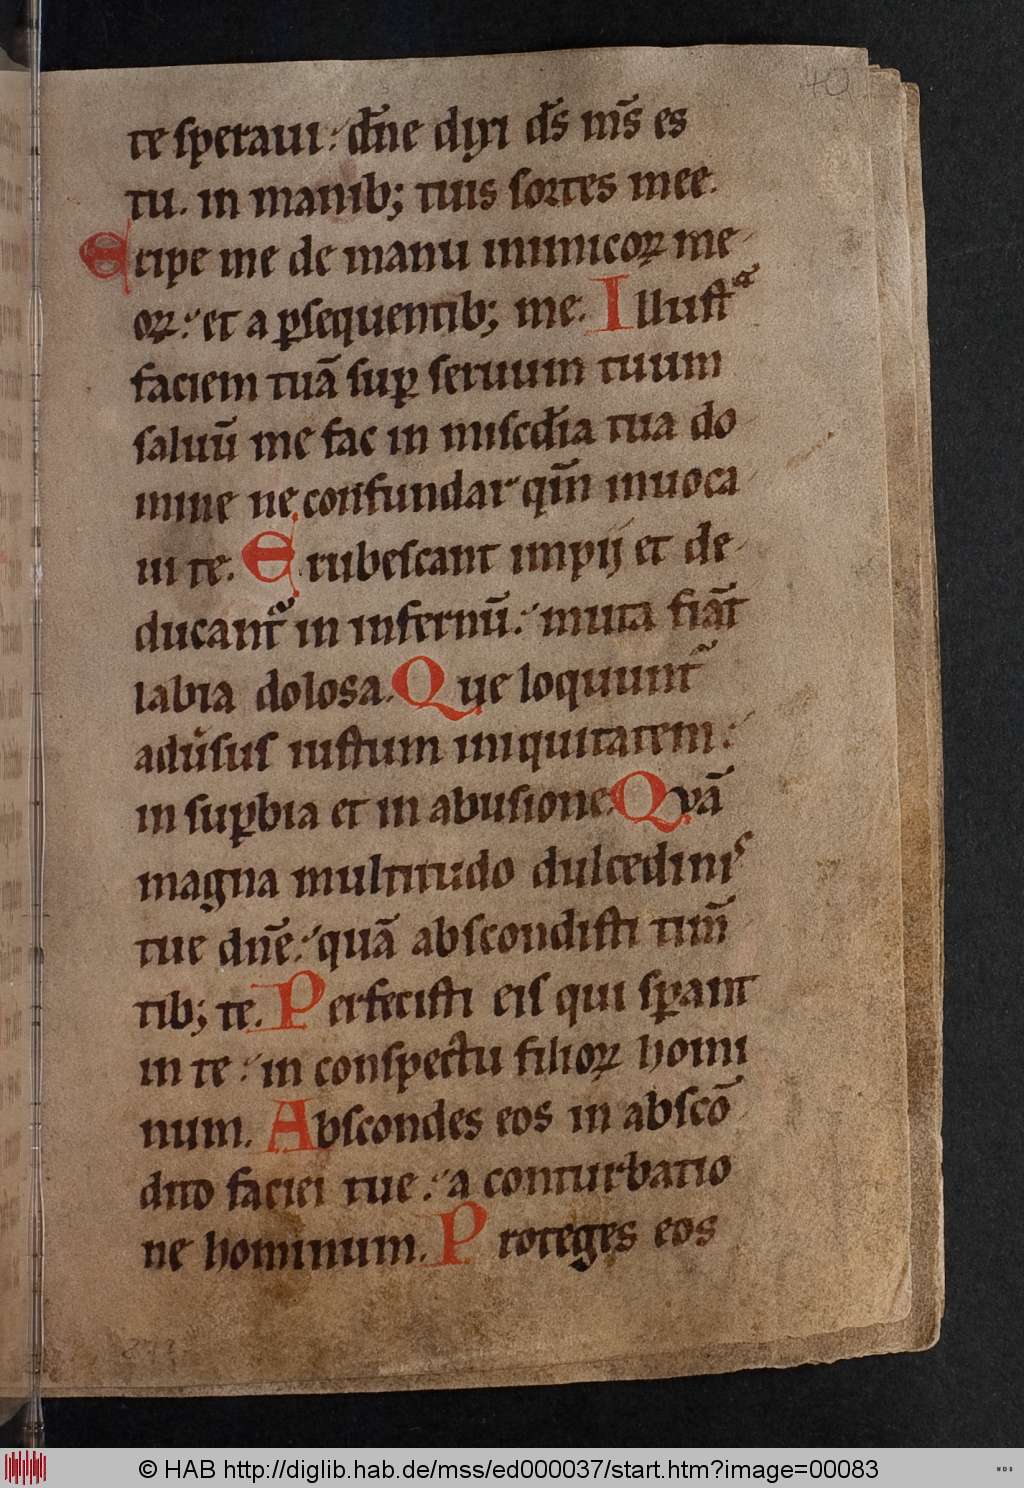 40
te speraui: dn̄e dixi ds̄ ms̄ es
tu. in manib; tuis sortes mee.
Eripe me de manu inimicoꝝ me
oꝝ: et a ꝑsequentib; me. Illustᵃ
faciem tuā suꝑ seruum tuum
saluū me fac in misc̄dia tua do
mine ne confundar qm̄ inuoca
ui te. Erubescant impij et de
ducantᷣ in infernū: muta fiāt
labia dolosa. Que loquuntᷣ
adūsus iustum iniquitatem:
in suꝑbia et in abusione. Qvā
magna multitudo dulcedinis
tue dn̄e: quā abscondisti tim̄
tib; te. Perfecisti eis qui sꝑant
in te: in conspectu filioꝝ homi
num. Abscondes eos in abscō
dito faciei tue: a conturbatio
ne hominum. Proteges eos
© HAB http://diglib.hab.de/mss/ed000037/start.htm?image=00083